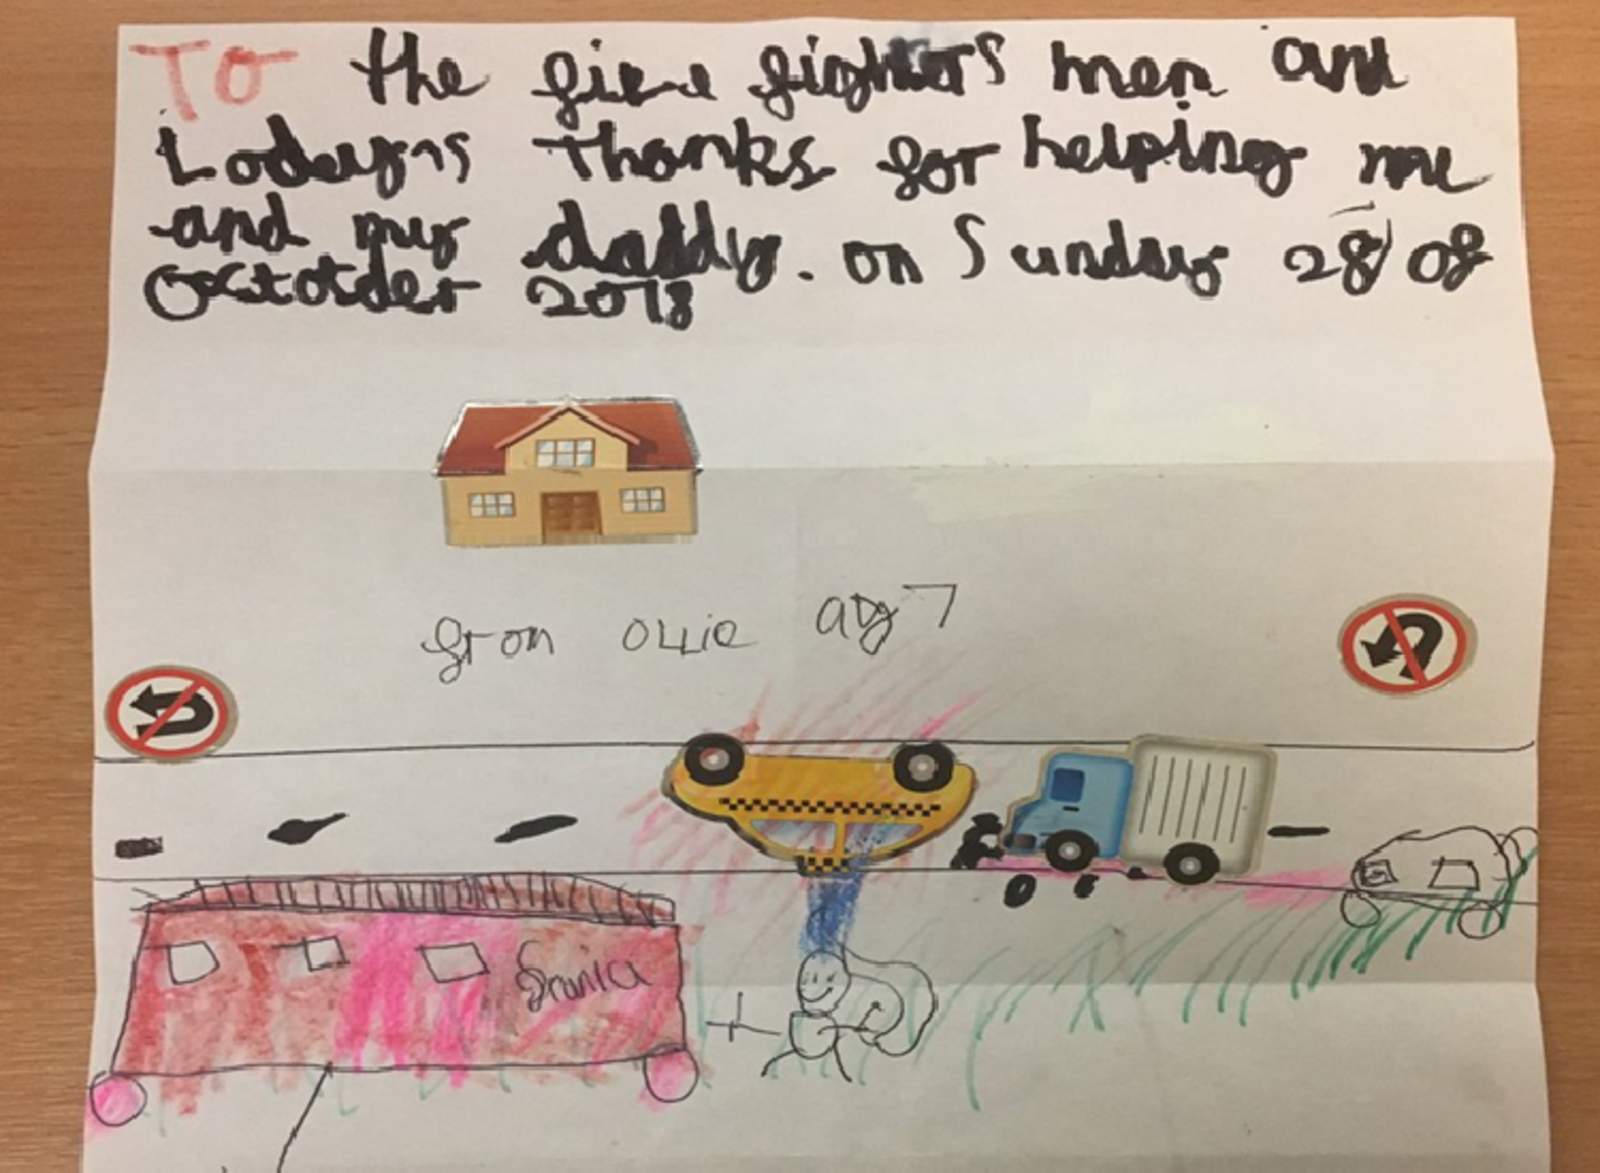 To the fire fighters men and
Lodeys thanks for helping me
and my daddy. on Sunday 28/08
Octotder 2018
from OLLie agy 7